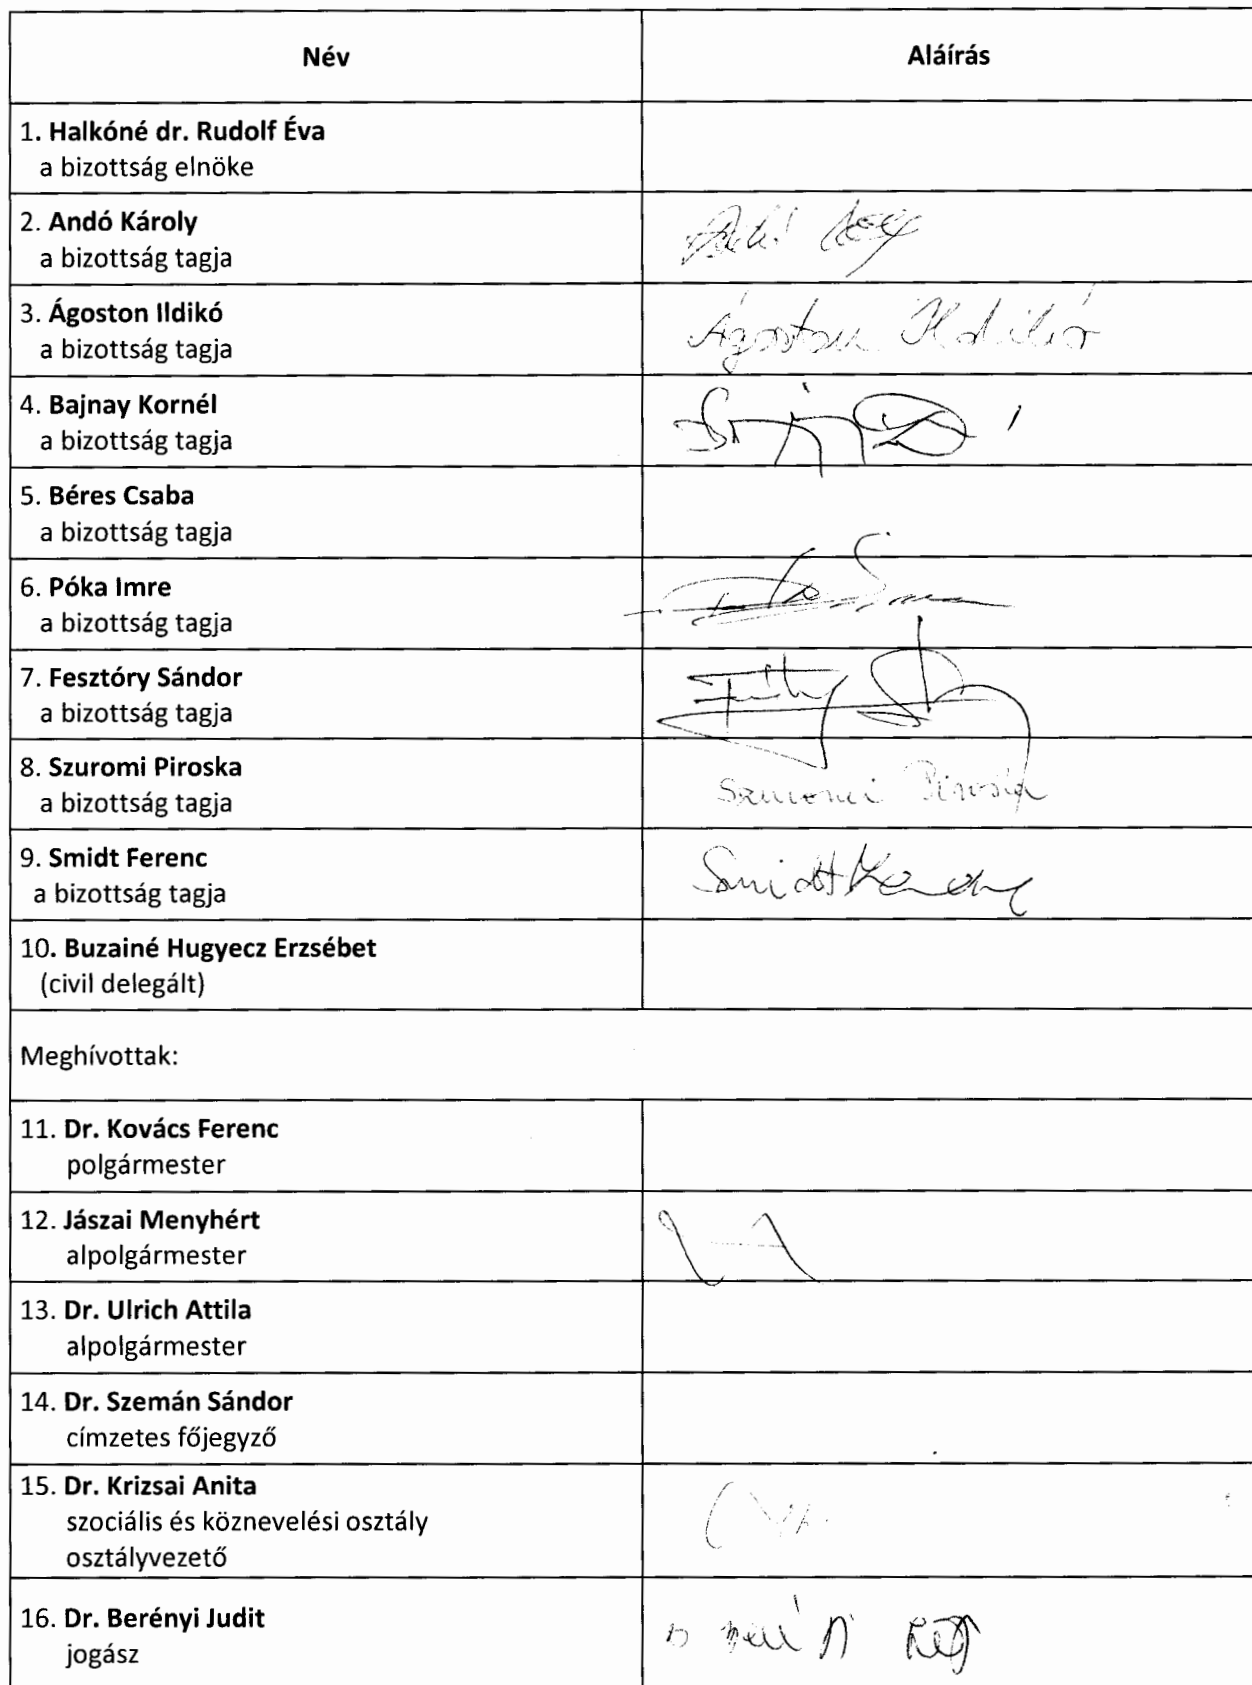 Név Aláírás
1. Halkóné dr. Rudolf Éva
a bizottság elnöke
2. Andó Károly
a bizottság tagja
3. Ágoston Ildikó
a bizottság tagja
Ágoston Ildikó
4. Bajnay Kornél
a bizottság tagja
5. Béres Csaba
a bizottság tagja
6. Póka Imre
a bizottság tagja
7. Fesztóry Sándor
a bizottság tagja
8. Szuromi Piroska
a bizottság tagja
Szuromi Piroska
9. Smidt Ferenc
a bizottság tagja
Smidt Ferenc
10. Buzainé Hugyecz Erzsébet
(civil delegált)
Meghívottak:
11. Dr. Kovács Ferenc
polgármester
12. Jászai Menyhért
alpolgármester
13. Dr. Ulrich Attila
alpolgármester
14. Dr. Szemán Sándor
címzetes főjegyző
15. Dr. Krizsai Anita
szociális és köznevelési osztály
osztályvezető
16. Dr. Berényi Judit
jogász